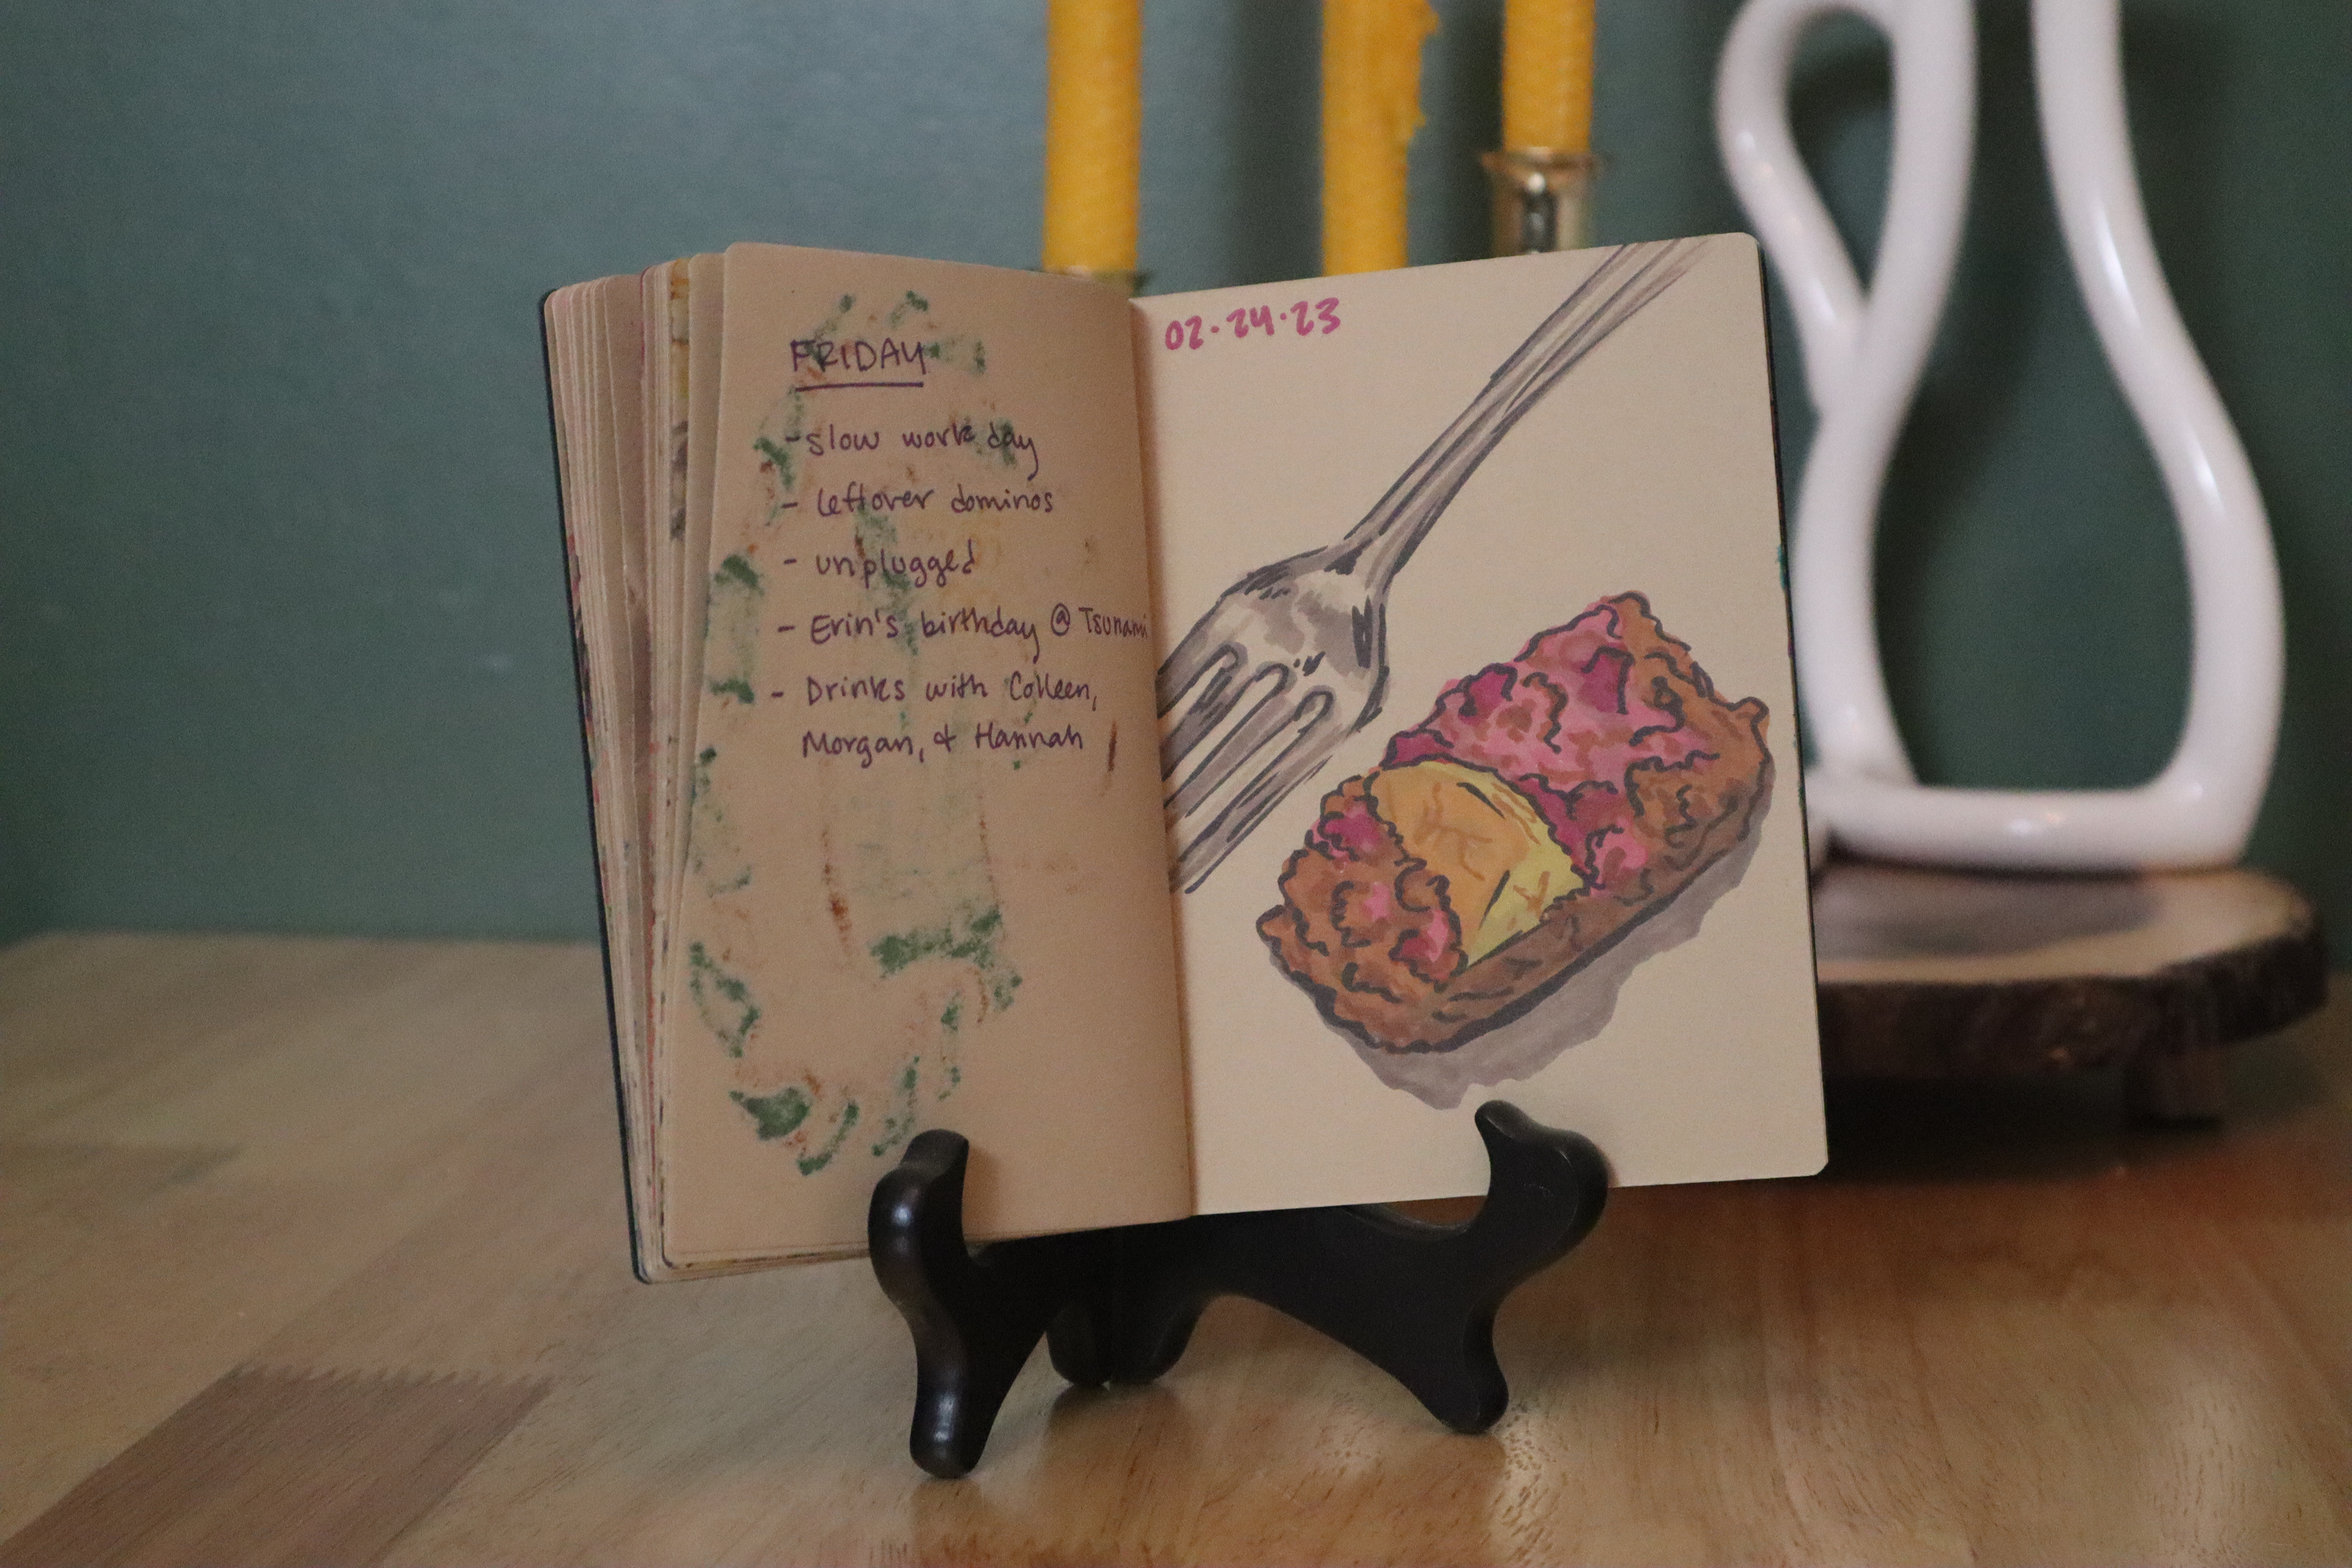 FRIDAY
- slow work day
- leftover dominos
- unplugged
- Erin's birthday @ Tsunami
- Drinks with Colleen,
Morgan, & Hannah
02.24.23